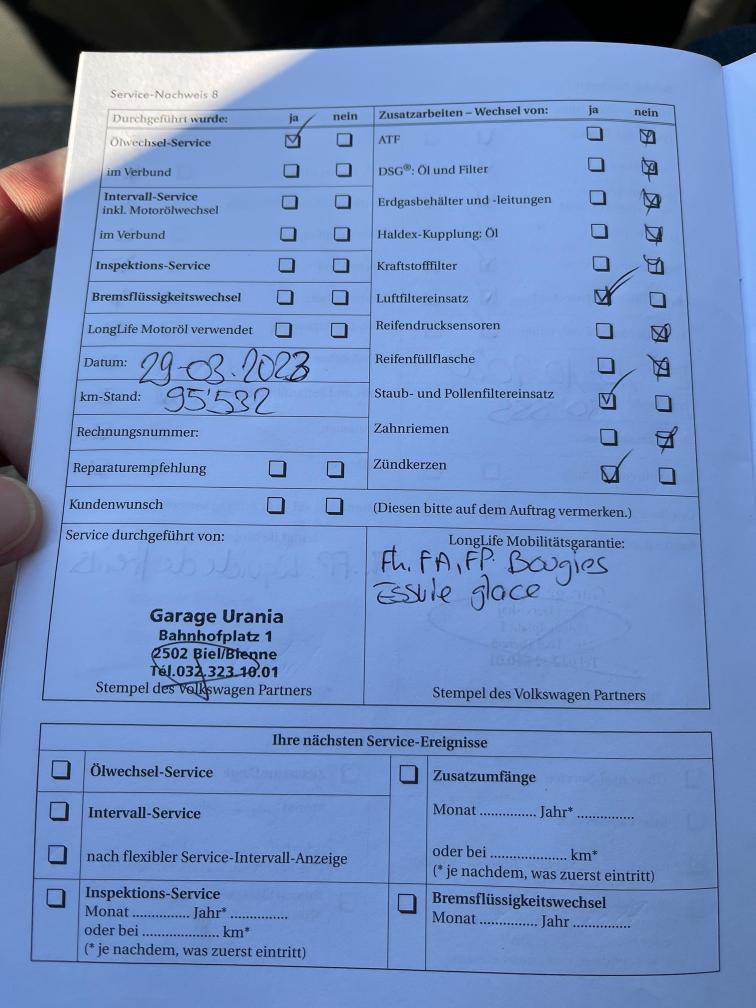 Service-Nachweis 8
Durchgeführt wurde: ja nein
Ölwechsel-Service
im Verbund
Intervall-Service
inkl. Motorölwechsel
im Verbund
Inspektions-Service
Bremsflüssigkeitswechsel
LongLife Motoröl verwendet
Datum: 29-03.2023
km-Stand: 95'532
Rechnungsnummer:
Reparaturempfehlung
Kundenwunsch
Zusatzarbeiten – Wechsel von: ja nein
ATF
DSG®: Öl und Filter
Erdgasbehälter und -leitungen
Haldex-Kupplung: Öl
Kraftstofffilter
Luftfiltereinsatz
Reifendrucksensoren
Reifenfüllflasche
Staub- und Pollenfiltereinsatz
Zahnriemen
Zündkerzen
(Diesen bitte auf dem Auftrag vermerken.)
Service durchgeführt von:
Garage Urania
Bahnhofplatz 1
2502 Biel/Bienne
Tél.032.323.10.01
Stempel des Volkswagen Partners
LongLife Mobilitätsgarantie:
Fh. FA, FP. Bougies
Essuie glace
Stempel des Volkswagen Partners
Ihre nächsten Service-Ereignisse
Ölwechsel-Service
Intervall-Service
nach flexibler Service-Intervall-Anzeige
Inspektions-Service
Monat .............. Jahr* ..............
oder bei ................... km*
(* je nachdem, was zuerst eintritt)
Zusatzumfänge
Monat .............. Jahr* ..............
oder bei ................... km*
(* je nachdem, was zuerst eintritt)
Bremsflüssigkeitswechsel
Monat .............. Jahr ..............